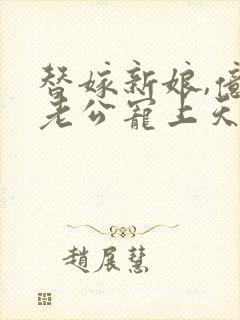 替嫁新娘,億
老公寵上天
趙展慧